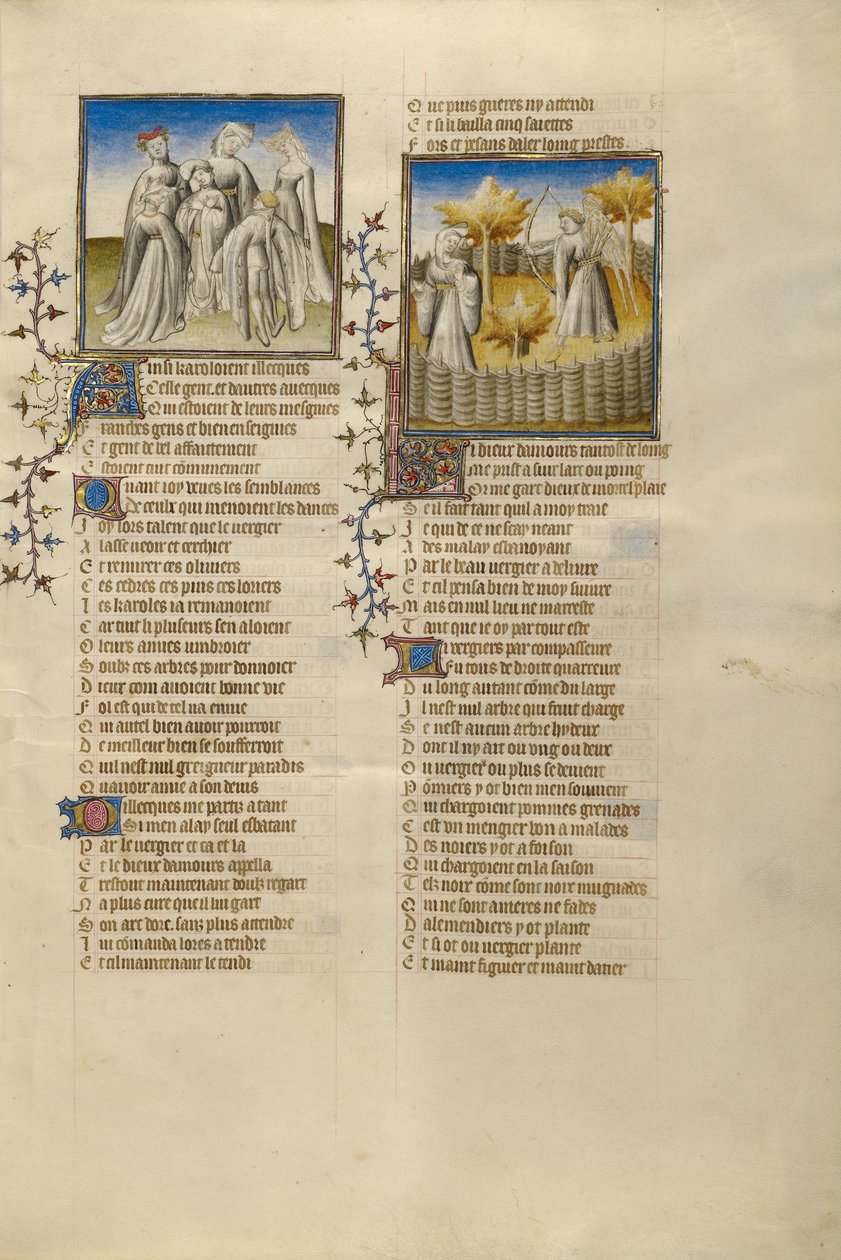 Ainsi karoloient illecques
Celle gent. et dautres auecques
Qui estoient de leurs mesgnies
Franches gens et bien enseignies
Et gent de bel affaittement
Estoient tuit cōmunement
Quant ioy veues les semblances
De ceulx qui menoient les dances
Joy lors talent que le vergier
Alasse veoir et cerchier
Et remirer ces oliuiers
Ces cedres ces pins ces loriers
Les karoles ia remanoient
Car tuit li pluseurs sen aloient
O leurs amies umbroier
Soubz ces arbres pour donnoier
Dieux com auoient bonne vie
Fol est qui de tel na enuie
Qui autel bien auoir pourroit
De meilleur bien se soufferroit
Quil nest nul greigneur paradis
Quauoir amie a son deuis
Dillecques me partiz a tant
Si men alay seul esbatant
Par le vergier et ca et la
Et le dieux damours appella
Trestout maintenant doulz regart
Na plus cure que il lui gart
Son arc dore. sanz plus attendre
Lui cōmanda lores a tendre
Et cil maintenant le tendi
Que puis gueres ny attendi
Et si li bailla cinq saiettes
Fors et pesans daler loing prestes.
Li dieux damours tantost de loing
Me prist a suir lart ou poing
Or me gart dieux de mortel plaie
Se il fait tant quil a moy traie
Je qui de ce ne scay neant
Ades malay esbanoyant
Par le beau vergier a deliure
Et cil pensa bien de moy suiure
Mais en nul lieu ne marreste
Tant que ie oy par tout este
Li vergiers par compasseure
Fu tous de droite quarreure
Du long autant cōme du large
Il nest nul arbre qui fruit charge
Se nest aucun arbre hydeux
Dont il ny ait ou vng ou deux
Ou vergier ou plus se deuient
Pōmiers y ot bien men souuient
Qui chargoient pommes grenades
Cest vn mengier bon a malades
Des noiers y ot a foison
Qui chargoient en la saison
Telz noix cōme sont noix muguades
Qui ne sont ameres ne fades
Dalemendiers y ot plante
Et si ot ou vergier plante
Et maint figuier et maint datier